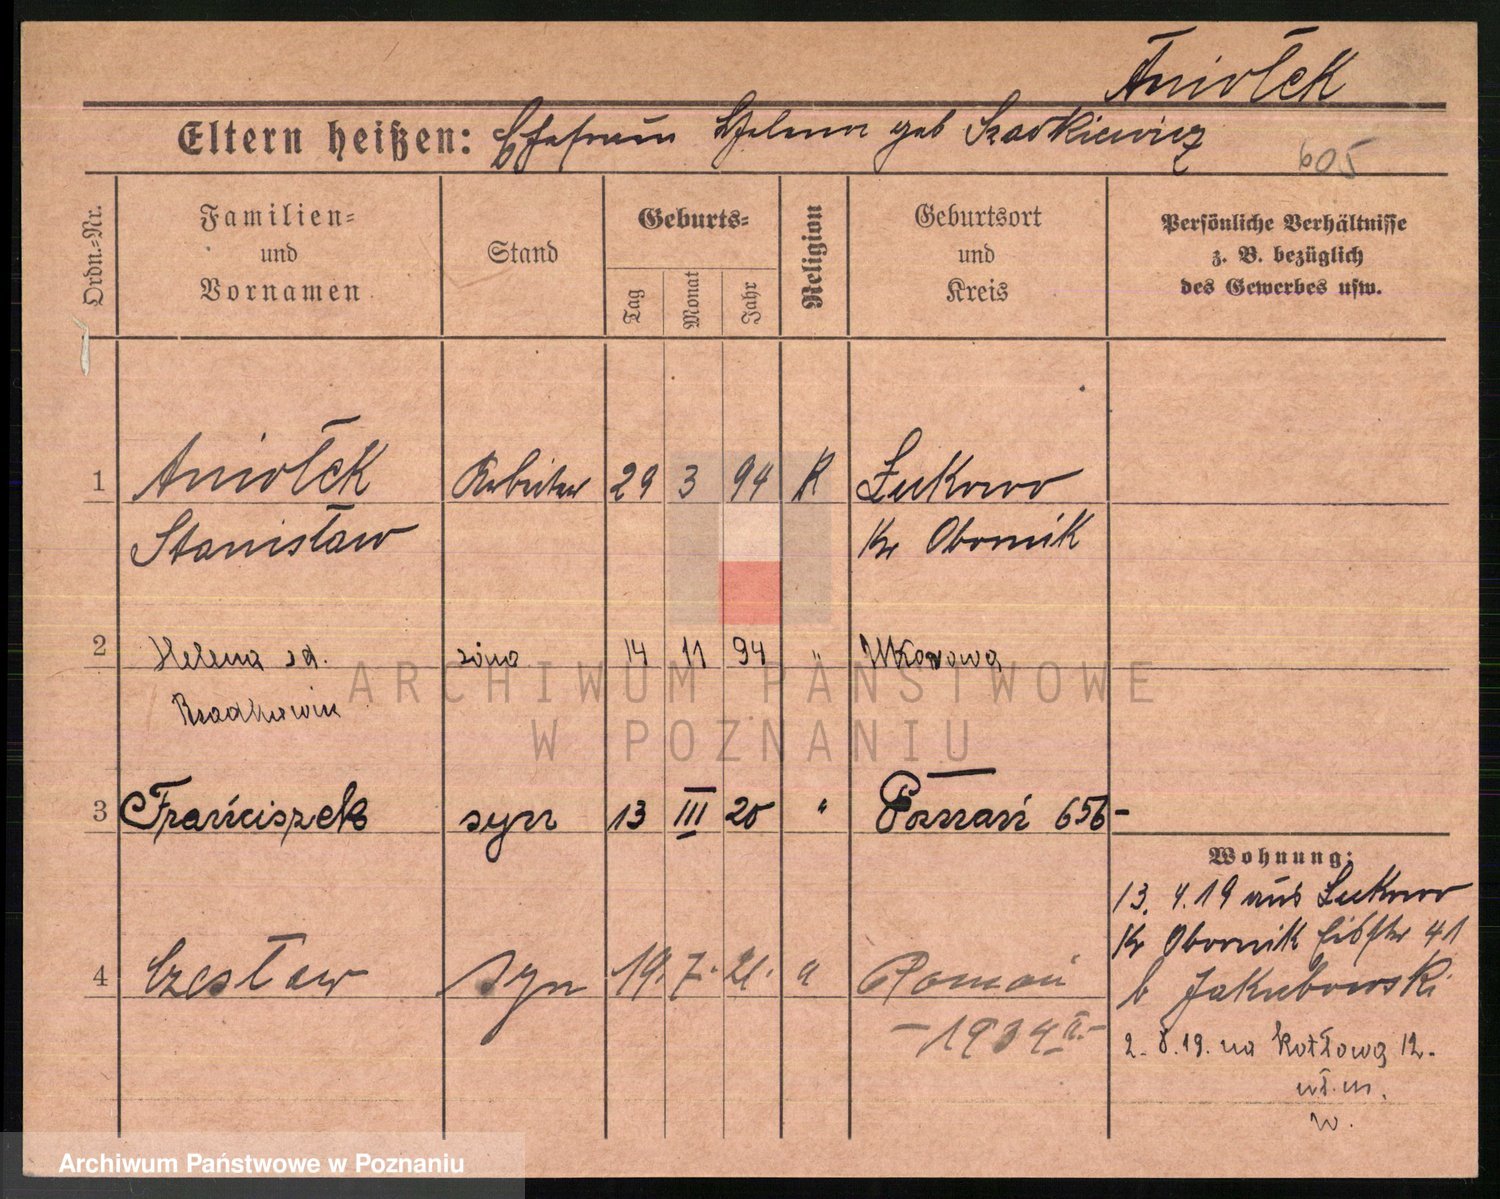 Aniołek
Eltern heißen: Ehefrau Helene geb Szadkiewicz
605
Ordn.-Nr.
Familien-
und
Vornamen
Stand
Geburts-
Tag
Monat
Jahr
Religion
Geburtsort
und
Kreis
Persönliche Verhältnisse
z. B. bezüglich
des Gewerbes usw.
1 Aniołek Arbeiter 29 3 94 R Łukowo
Stanisław Kr Obornik
2 Helena zd. żona 14 11 94 "
3 Franciszek syn 13 III 20 " Poznań 656-
Wohnung:
13. 4. 19 aus Łukowo
Kr Obornik 41
4 Czesław syn 19. 7. 21. " Poznań
b Jakubowski
- 1934 II. -
2. 8. 19. na Kotłową 12.
wł. m.
w.
ARCHIWUM PAŃSTWOWE
W POZNANIU
Archiwum Państwowe w Poznaniu